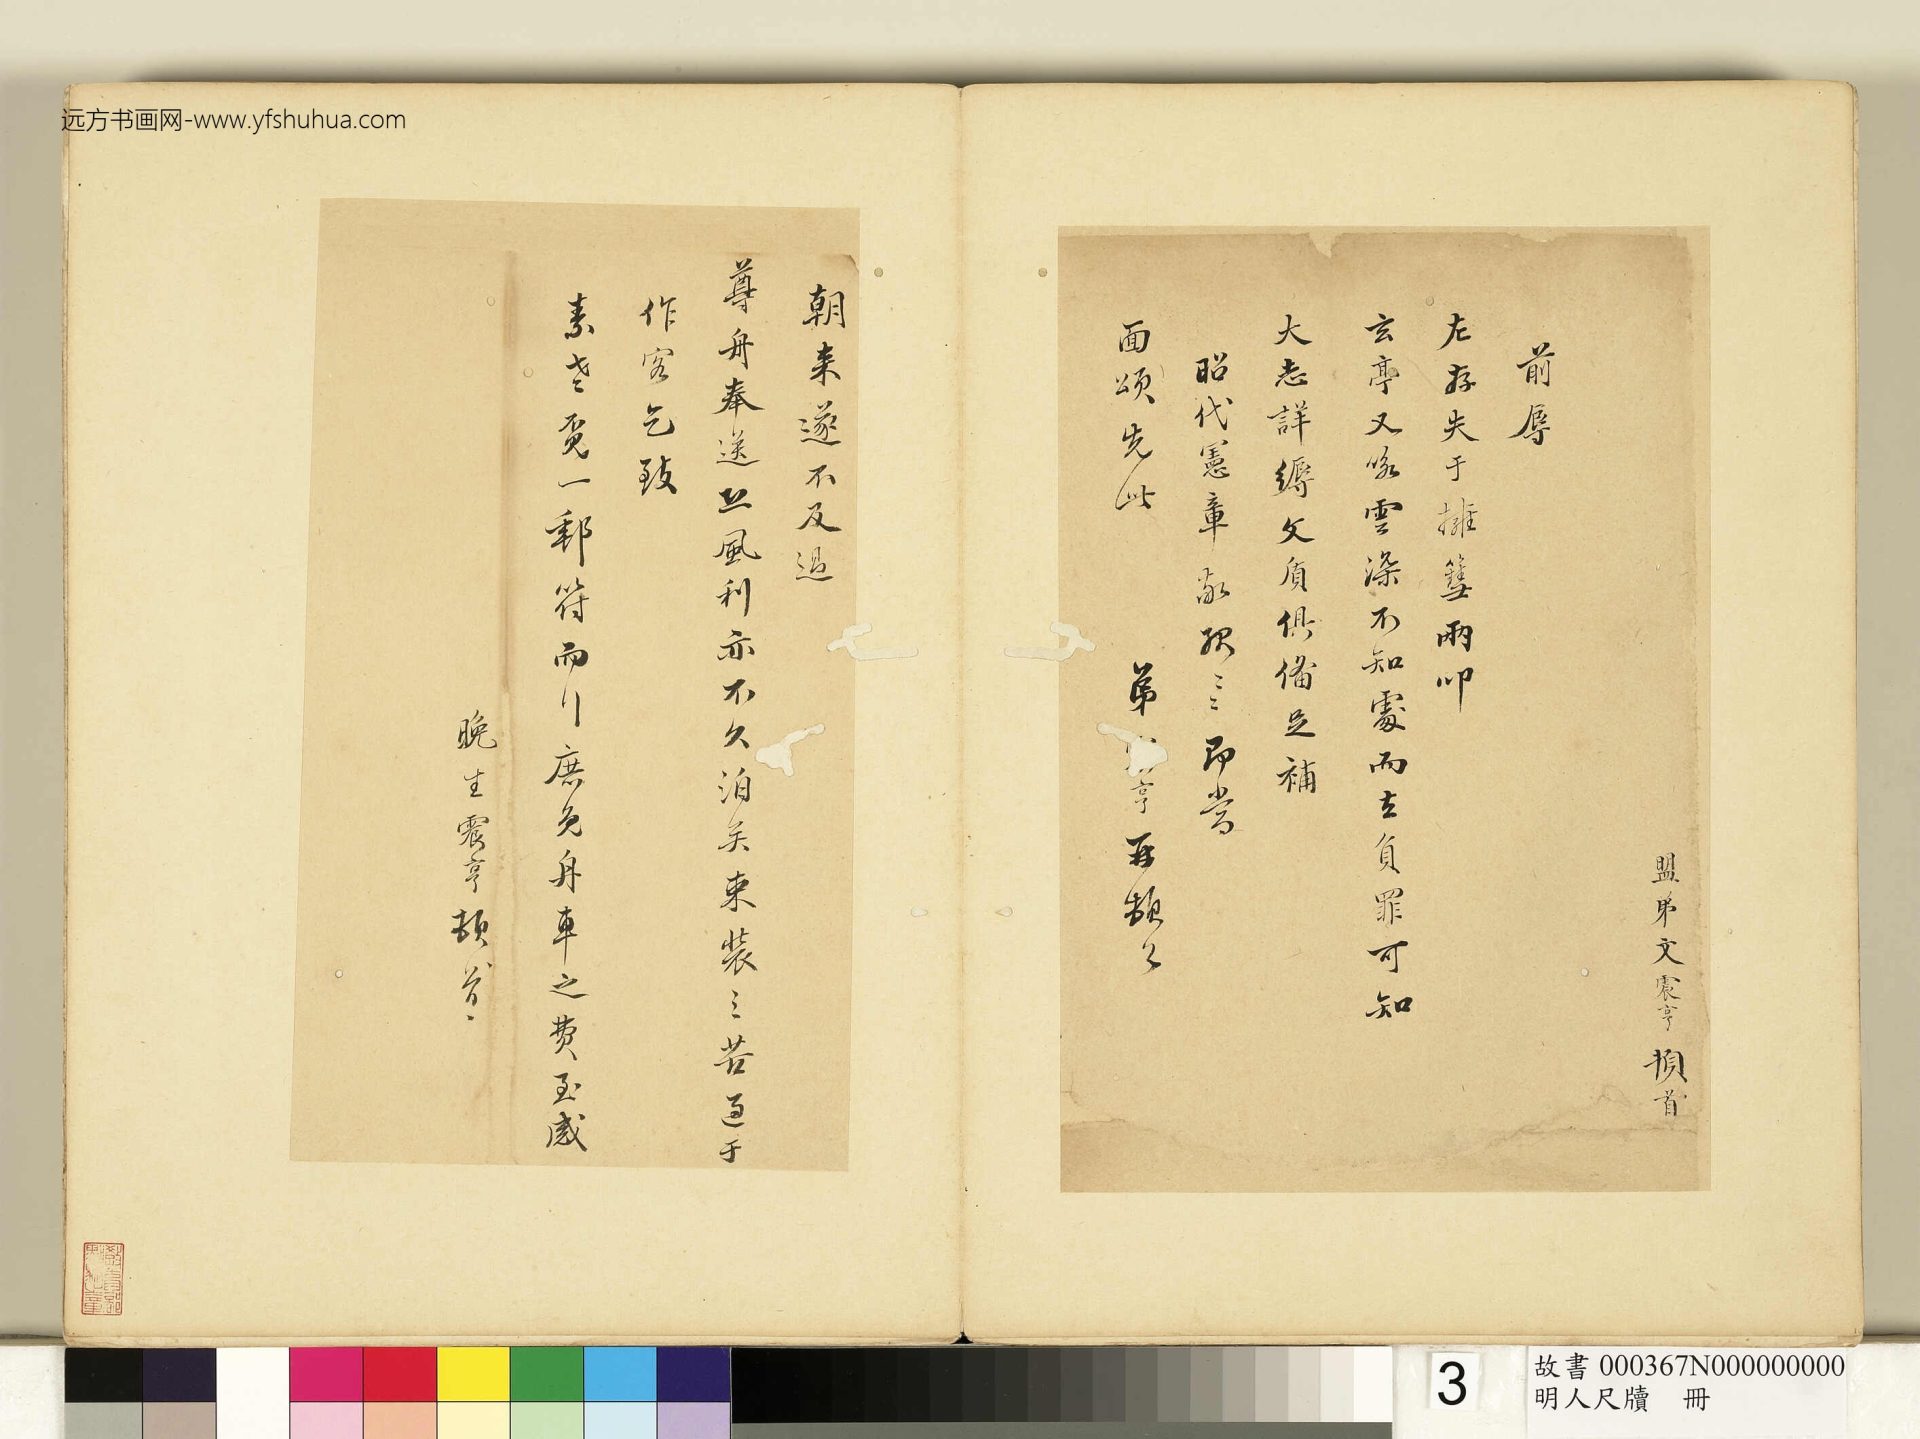 远方书画网-www.yfshuhua.com
盟弟文震亨頓首
前辱
左存失于擁篲兩叩
玄亭又以雲深不知處而去負罪可知
大志詳縟文質俱備足補
昭代憲章敬服〻即當
面頌先此
弟震亨再頓首
朝來遂不及過
尊舟奉送此風利亦不久泊矣束裝〻苦過于
作客乞致
素老覓一郵符而行庶免舟車之費至感
晚生震亨頓首
3
故書 000367N000000000
明人尺牘 冊